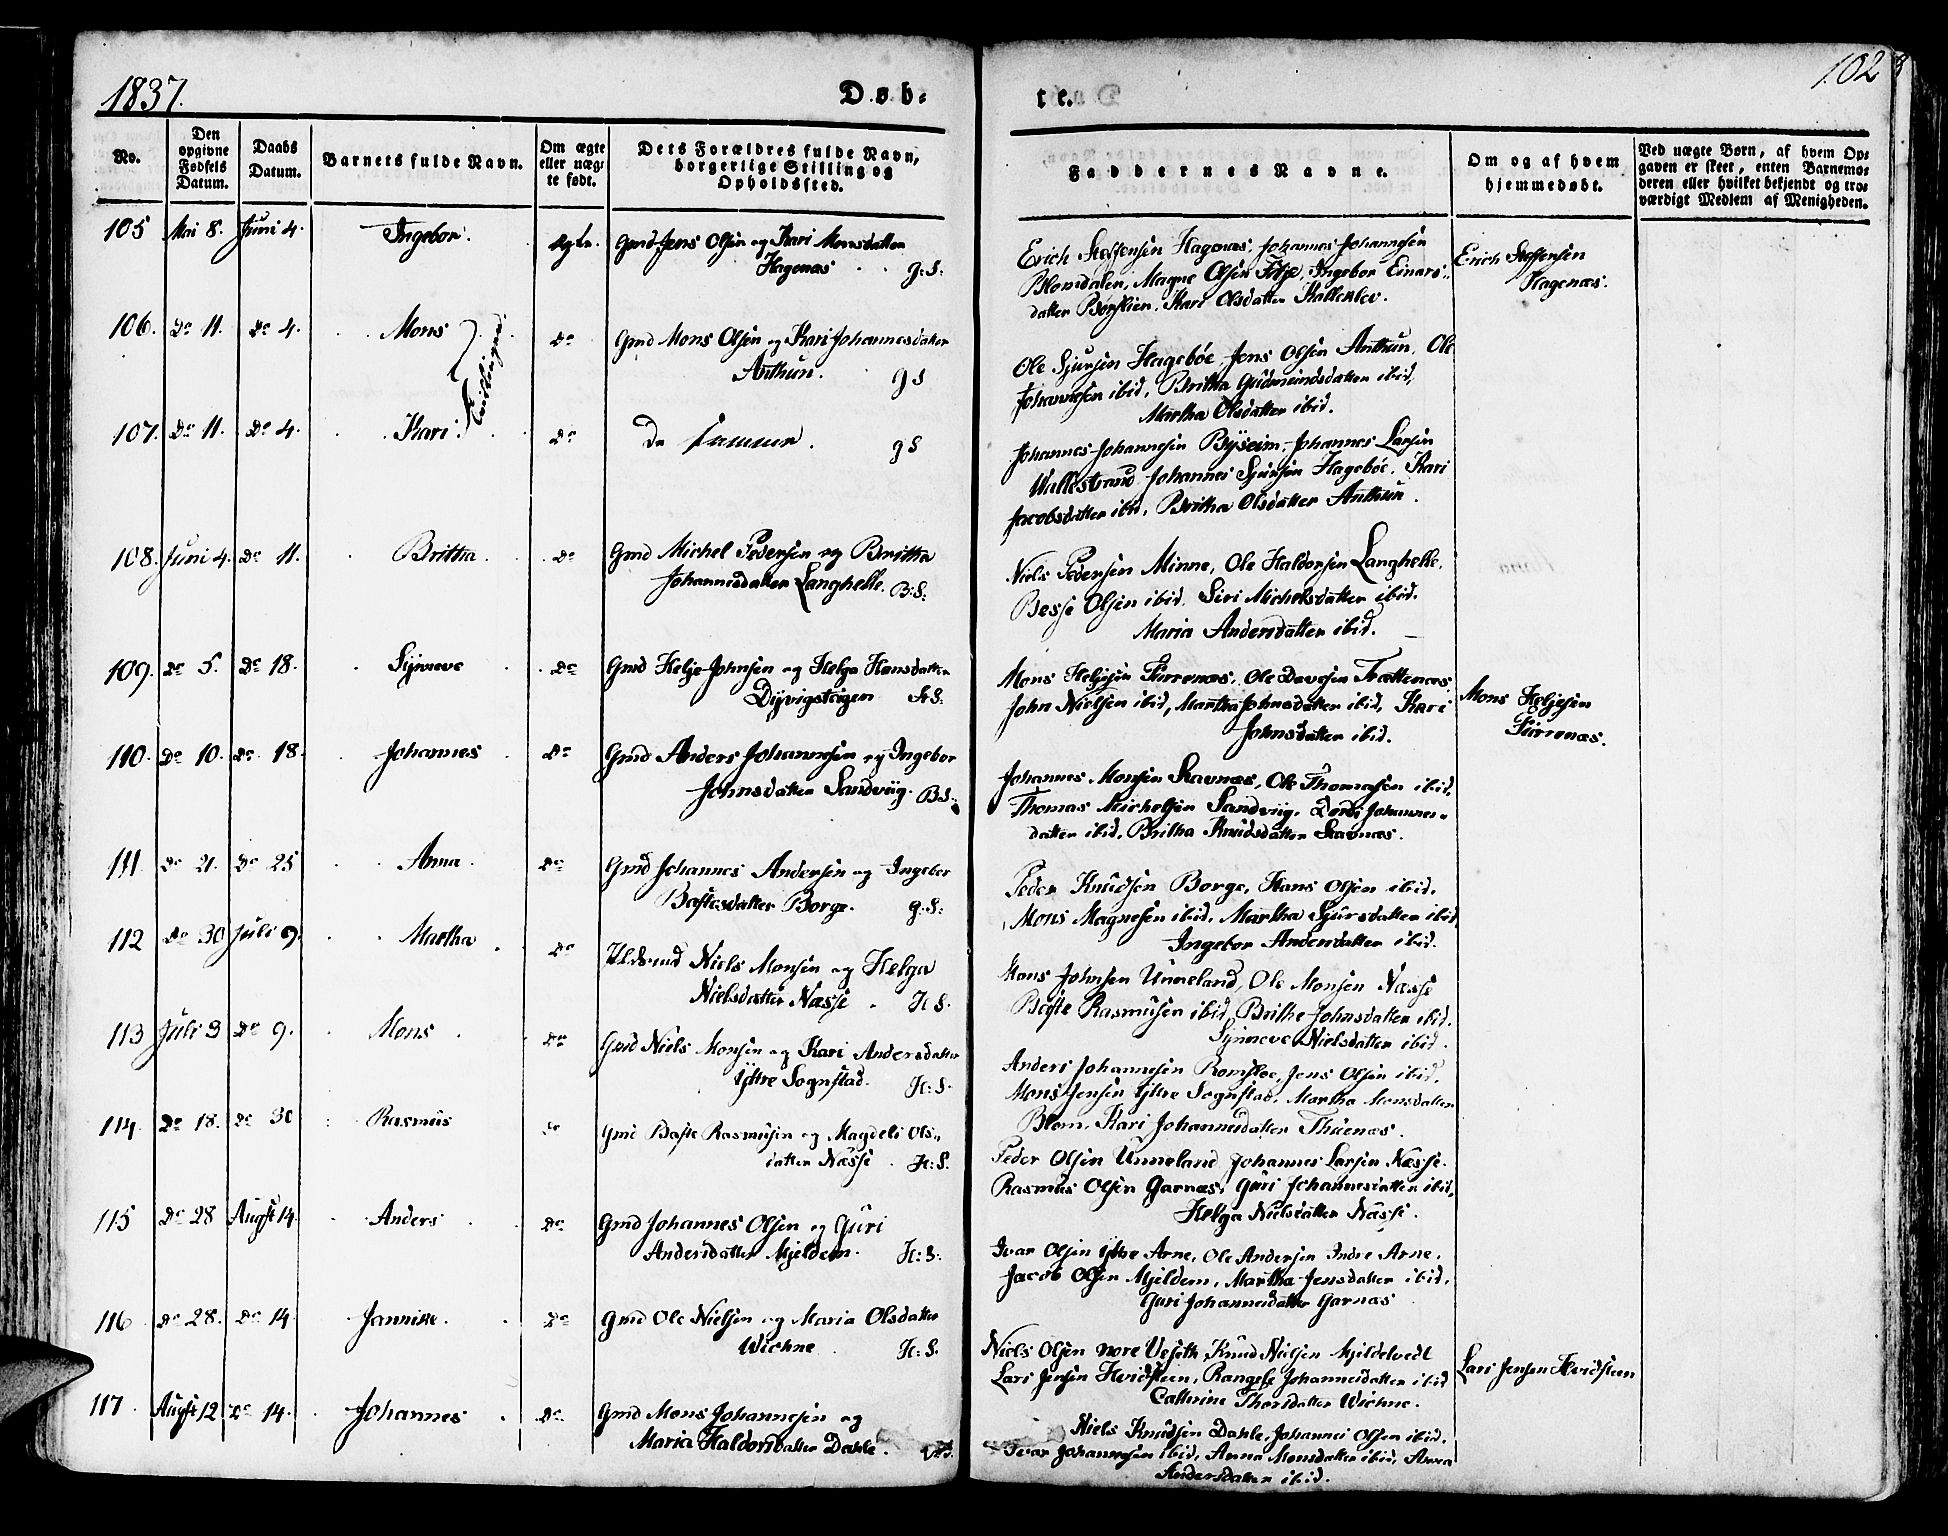 1837.
Døb-
te.
102
No.
Den opgivne Fødsels Datum.
Daabs Datum.
Barnets fulde Navn.
Om ægte eller uægte født.
Dets Forældres fulde Navn, borgerlige Stilling og Opholdssted.
Faddernes Navne.
Om og af hvem hjemmedøbt.
Ved uægte Børn, af hvem Opgaven er skeet, enten Barnemoderen eller hvilket bekjendt og troværdigt Medlem af Menigheden.
105 Mai 8. Juni 4. Ingebor. ægte. Gmd Jens Olsen og Kari Monsdatter
Hagenæs G:S:
Erich Steffensen Hagenæs, Johannes Johannesen
Blomdalen, Magne Olsen Titje, Ingebor Einars-
datter Børslien, Kari Olsdatter Kalleklev.
Erich Steffensen
Hagenæs.
106. Do 11. Do 4. Mons Tvillinger Do Gmd Mons Olsen og Kari Johannesdatter
Anthun. G S
Ole Sjursen Hagebøe, Jens Olsen Anthun, Ole
Johannesen ibid, Britha Gudmundsdatter ibid,
Martha Olsdatter ibid.
107. Do 11. Do 4. Kari. Do De samme. G S
Johannes Johannesen Byseim, Johannes Larsen
Wallestrand, Johannes Sjursen Hagebøe, Kari
Jacobsdatter ibid, Britha Olsdatter Anthun.
108. Juni 4. Do 11. Britha. Do Gmd Michel Pedersen og Britha
Johannesdatter Langhelle. B:S:
Niels Pedersen Minne, Ole Haldorsen Langhelle,
Besse Olsen ibid, Siri Michelsdatter ibid.
Maria Andersdatter ibid.
109. Do 5. Do 18. Synneve Do Gmd Helje Johnsen og Helga Hansdatter
Dyvigsteigen H:S:
Mons Heljesen Furrenæs, Ole Davesen Trættenæs,
John Nielsen ibid, Martha Johnsdatter ibid, Kari
Johnsdatter ibid.
Mons Heljesen
Furrenæs.
110. Do 10. Do 18. Johannes Do Gmd Anders Johannesen og Ingebor
Johnsdatter Sandviig. B:S:
Johannes Monsen Stavnæs, Ole Thomasen ibid,
Thomas Michelsen Sandviig, Dordi Johannes-
datter ibid, Britha Knudsdatter Stavnæs.
111. Do 21. Do 25 Anna. Do Gmd Johannes Andersen og Ingebor
Bastesdatter Borge. G:S:
Peder Knudsen Borge, Hans Olsen ibid.
Mons Magnesen ibid, Martha Sjursdatter ibid
Ingebor Andersdatter ibid.
112 Do 30 Juli 9. Martha Do Niels Monsen og Helga
Nielsdatter Næsse H S.
Mons Johnsen Unneland, Ole Monsen Næsse
Baste Rasmusen ibid, Brithe Johnsdatter ibid.
Synneve Nielsdatter ibid.
113 Juli 3 Do 9. Mons Do Gmd Niels Monsen og Kari Andersdatter
Yttre Sognstad. H:S.
Anders Johannesen Romsløe, Jens Olsen ibid,
Mons Jensen Yttre Sognstad, Martha Monsdatter
Blom, Kari Johannesdatter Thuenæs.
114. Do 18. Do 30 Rasmus Do Gmd Baste Rasmusen og Magdeli Ols-
datter Næsse H:S.
Peder Olsen Unneland, Johannes Larsen Næsse.
Rasmus Olsen Garnæs, Guri Johannesdatter ibid,
Helga Nielsdatter Næsse.
115 Do 28 Augst 14. Anders Do Gmd Johannes Olsen og Guri
Andersdatter Mjeldem. H:S.
Ivar Olsen Yttre Arne, Ole Andersen Indre Arne,
Jacob Olsen Mjeldem, Martha Jensdatter ibid,
Guri Johannesdatter Garnæs
116 Do 28. Do 14 Jannike. Do Gmd Ole Nielsen og Maria Olsdatter
Wichne H:S.
Niels Olsen nore Useth, Knud Nielsen Mjeldetvedt
Lars Jensen Hvidsteen, Rangele Johannesdatter ibid
Cathrine Thorsdatter Wichne.
Lars Jensen Hvidsteen
117. Augst 12 Do 14. Johannes Do Gmd Mons Johannesen og
Maria Haldorsdatter Dahle.
Niels Knudsen Dahle, Johannes Olsen ibid.
Ivar Johannesen ibid, Anna Monsdatter ibid, Anna
Andersdatter ibid.